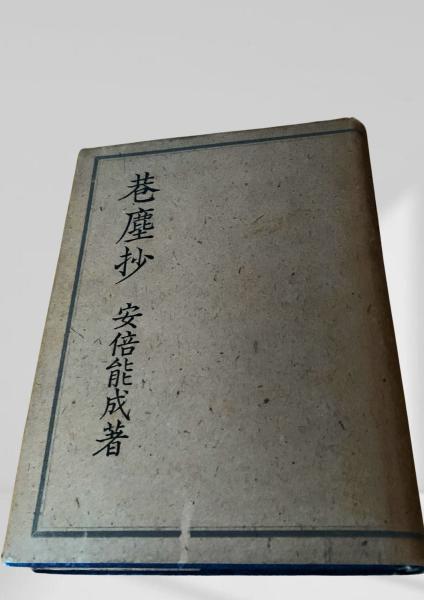 巷塵抄
安倍能成著